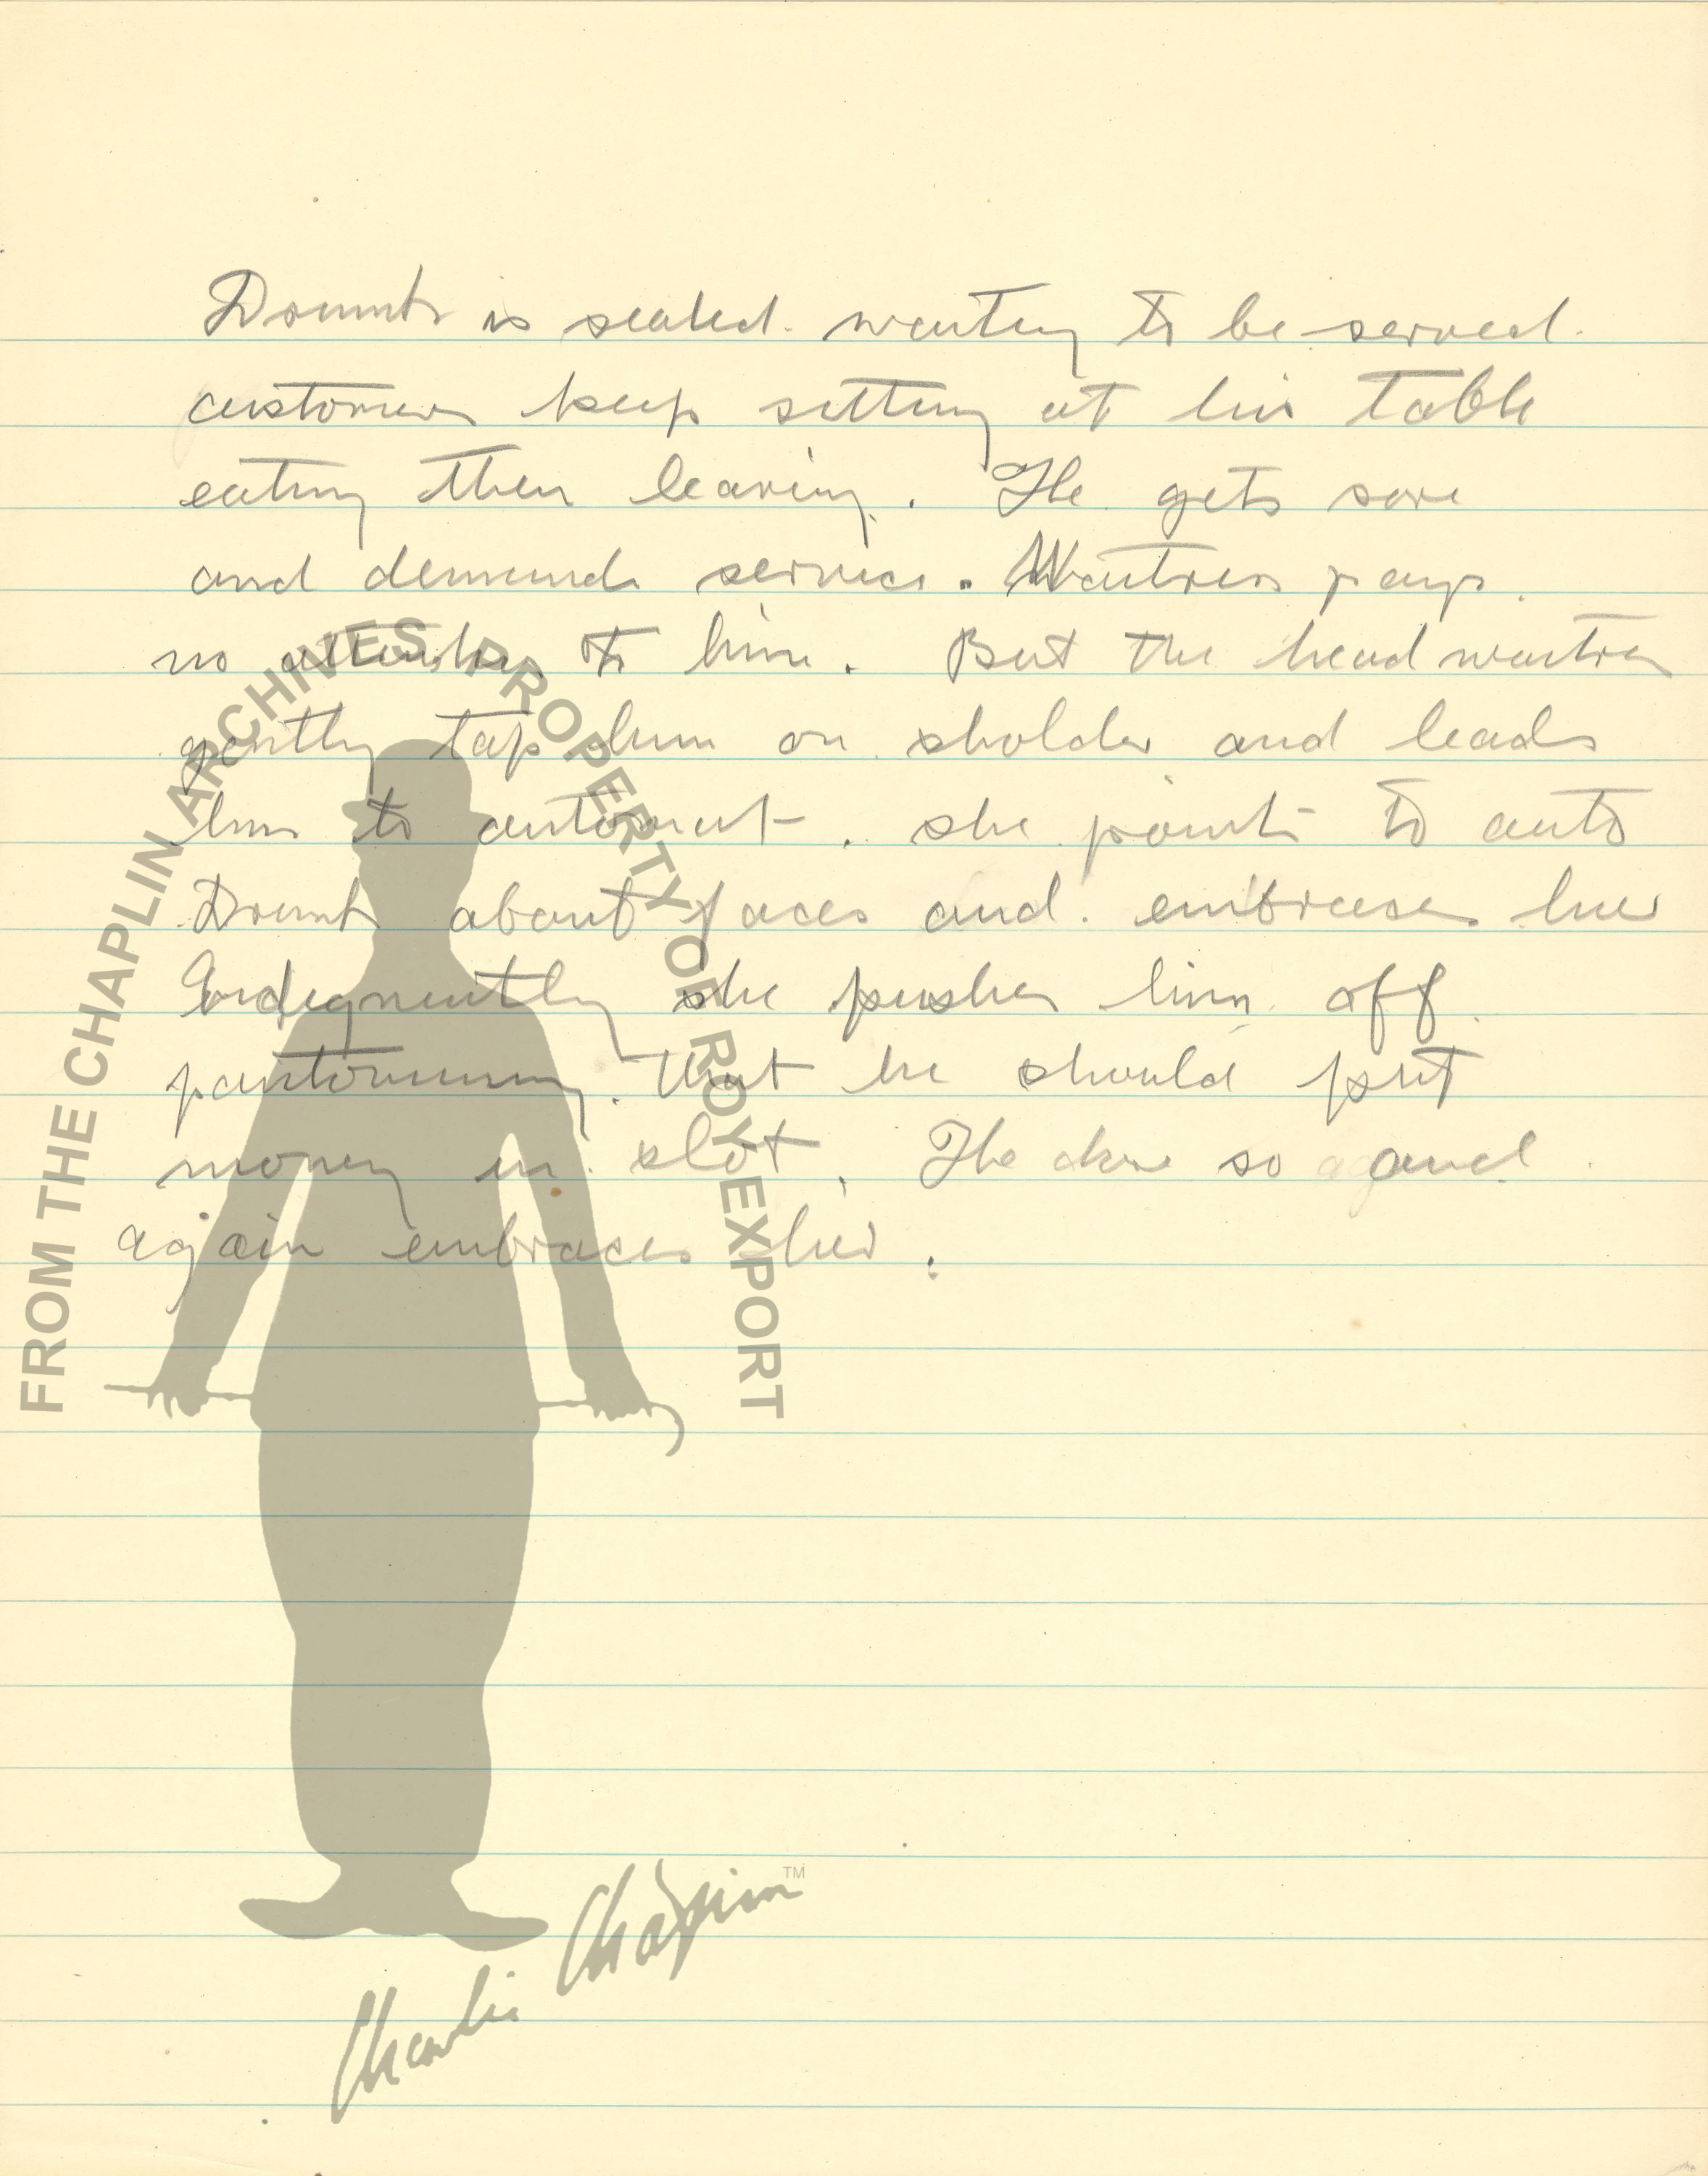 Drunk is seated. waiting to be served.
customers keep sitting at his table
eating then leaving. He gets sore
and demands service. Waitress pays
no attention to him. But the head waitress
gently tap him on sholder and leads
him to automat. she points to auto
Drunk about faces and. embraces her
Indignantly she pushes him off.
pantomiming. that he should put
money in slot. He does so and
again embraces her.
FROM THE CHAPLIN ARCHIVES PROPERTY OF ROY EXPORT
Charlie Chaplin™